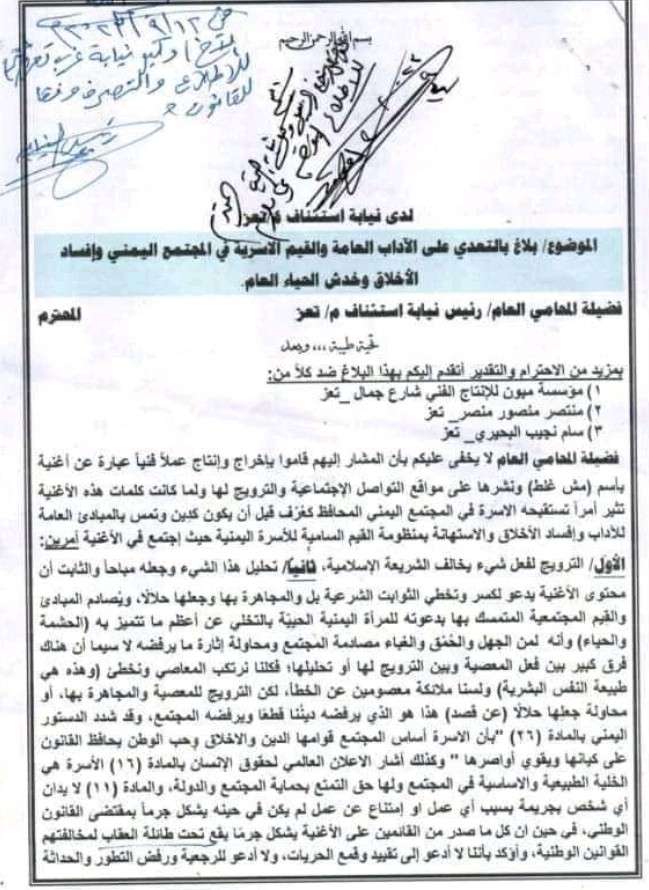 بسم الله الرحمن الرحيم
للاطلاع والتصرف وفقا
للقانون
لدى نيابة استئناف م/تعز
الموضوع/ بلاغ بالتعدي على الآداب العامة والقيم الاسرية في المجتمع اليمني وإفساد
الأخلاق وخدش الحياء العام.
فضيلة المحامي العام/ رئيس نيابة استئناف م/ تعز المحترم
تحية طيبة ،،، وبعد
بمزيد من الاحترام والتقدير أتقدم إليكم بهذا البلاغ ضد كلاً من:
١) مؤسسة ميون للإنتاج الفني شارع جمال _تعز
٢) منتصر منصور منصر_ تعز
٣) سام نجيب البحيري_ تعز
فضيلة المحامي العام لا يخفى عليكم بأن المشار إليهم قاموا بإخراج وإنتاج عملاً فنياً عبارة عن أغنية
بأسم (مش غلط) ونشرها على مواقع التواصل الإجتماعية والترويج لها ولما كانت كلمات هذه الأغنية
تثير أمراً تستقبحه الاسرة في المجتمع اليمني المحافظ كعُرف قبل أن يكون كدين وتمس بالمبادئ العامة
للآداب وإفساد الأخلاق والاستهانة بمنظومة القيم السامية للأسرة اليمنية حيث إجتمع في الأغنية أمرين:
الأول/ الترويج لفعل شيء يخالف الشريعة الإسلامية، ثانياً/ تحليل هذا الشيء وجعله مباحاً والثابت أن
محتوى الأغنية يدعو لكسر وتخطي الثوابت الشرعية بل والمجاهرة بها وجعلها حلالًا، ويُصادم المبادئ
والقيم المجتمعية المتمسك بها بدعوته للمرأة اليمنية الحييّة بالتخلي عن أعظم ما تتميز به (الحشمة
والحياء) وأنه لمن الجهل والحُمق والغباء مصادمة المجتمع ومحاولة إثارة ما يرفضه لا سيما أن هناك
فرق كبير بين فعل المعصية وبين الترويج لها أو تحليلها؛ فكلنا نرتكب المعاصي ونخطئ (وهذه هي
طبيعة النفس البشرية) ولسنا ملائكة معصومين عن الخطأ، لكن الترويج للمعصية والمجاهرة بها، أو
محاولة جعلها حلالًا (عن قصد) هذا هو الذي يرفضه ديننا قطعًا ويرفضه المجتمع، وقد شدد الدستور
اليمني بالمادة (٢٦) "بأن الاسرة أساس المجتمع قوامها الدين والاخلاق وحب الوطن يحافظ القانون
على كيانها ويقوي أواصرها " وكذلك أشار الاعلان العالمي لحقوق الإنسان بالمادة (١٦) الأسرة هي
الخلية الطبيعية والاساسية في المجتمع ولها حق التمتع بحماية المجتمع والدولة، والمادة (١١) لا يدان
أي شخص بجريمة بسبب أي عمل او إمتناع عن عمل لم يكن في حينه يشكل جرماً بمقتضى القانون
الوطني، في حين ان كل ما صدر من القائمين على الأغنية يشكل جرمًا يقع تحت طائلة العقاب لمخالفتهم
القوانين الوطنية، وأؤكد بأننا لا أدعو إلى تقييد وقمع الحريات، ولا أدعو للرجعية ورفض التطور والحداثة